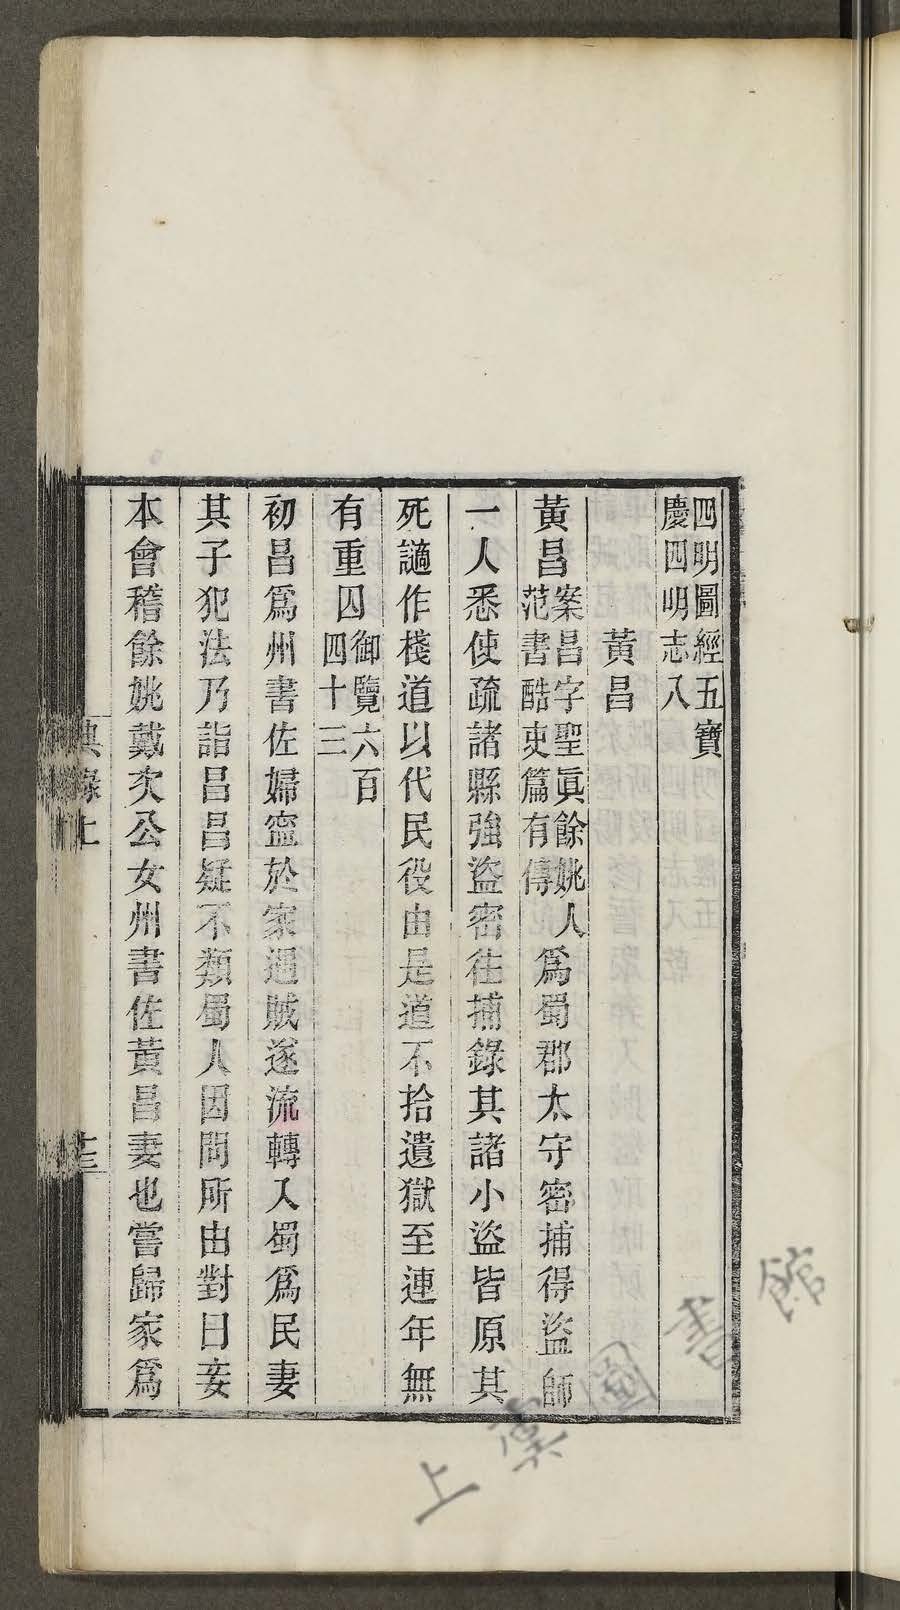 四明圖經五寶
慶四明志八
黃昌
黃昌案昌字聖真餘姚人范書酷吏篇有傳爲蜀郡太守密捕得盜師
一人悉使疏諸縣強盜密往捕錄其諸小盜皆原其
死讁作棧道以代民役由是道不拾遺獄至連年無
有重囚御覽六百四十三
初昌爲州書佐婦寧於家遇賊遂流轉入蜀爲民妻
其子犯法乃詣昌昌疑不類蜀人因問所由對曰妾
本會稽餘姚戴次公女州書佐黃昌妻也嘗歸家爲
典錄上
十三
上虞圖書館